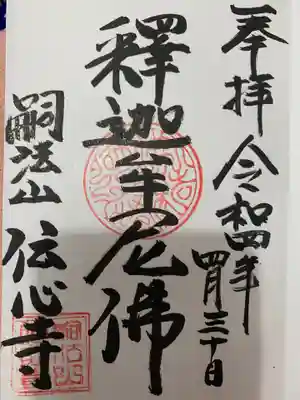 奉拝 令和四年
四月三十日
釋迦牟尼佛
嗣法山 伝心寺